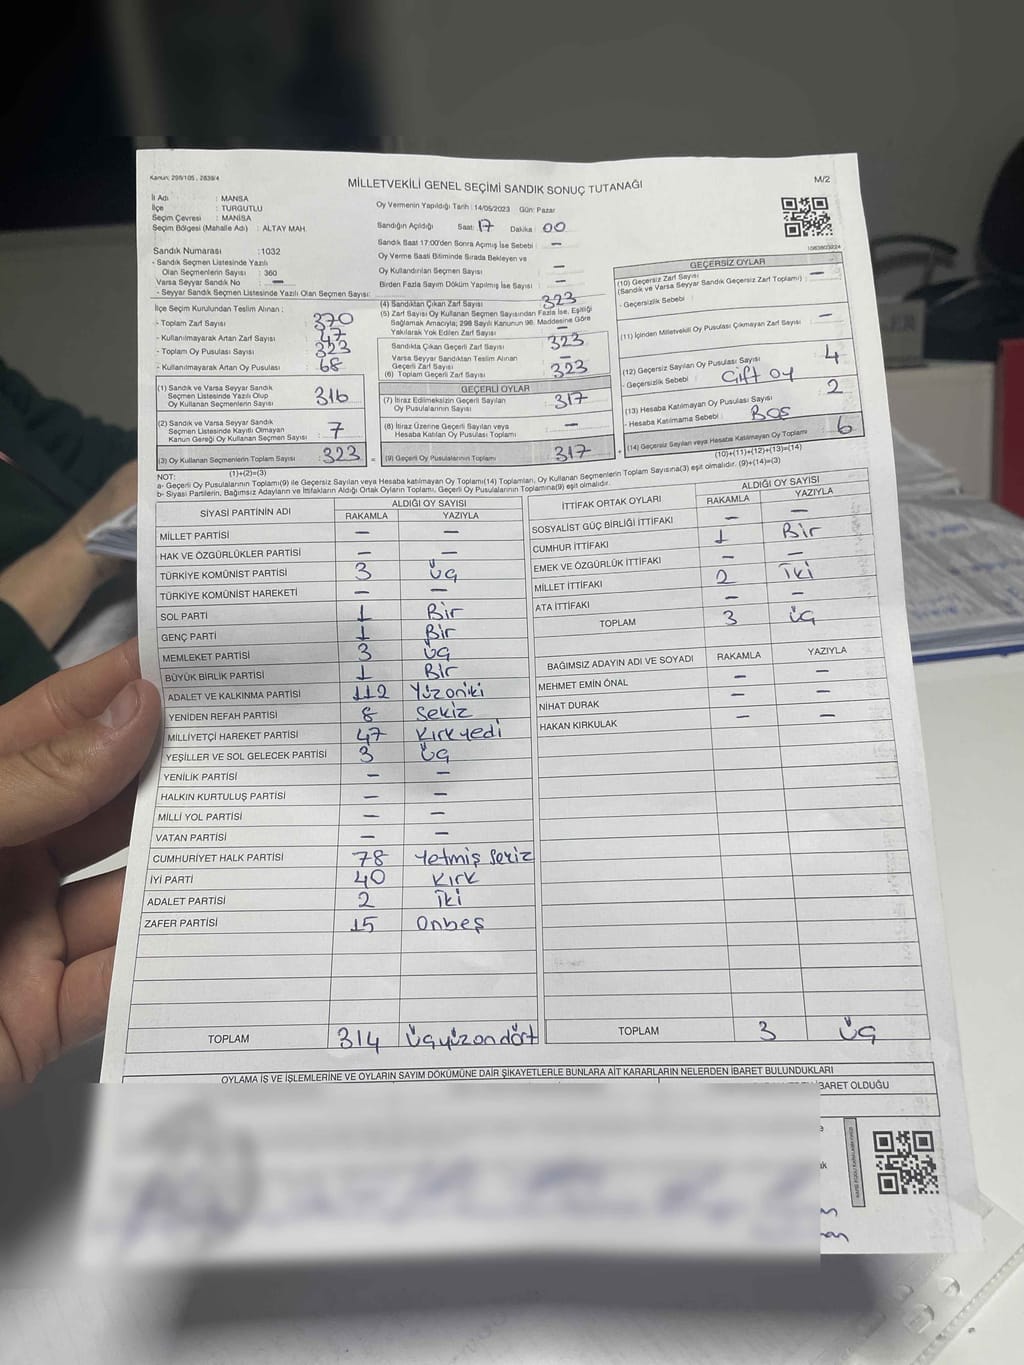 Kanun; 298/105 , 2839/4
MİLLETVEKİLİ GENEL SEÇİMİ SANDIK SONUÇ TUTANAĞI
M/2
İl Adı : MANİSA
İlçe : TURGUTLU
Seçim Çevresi : MANİSA
Seçim Bölgesi (Mahalle Adı) : ALTAY MAH.
Oy Vermenin Yapıldığı Tarih : 14/05/2023 Gün: Pazar
Sandığın Açıldığı Saat: 17 Dakika : 00
Sandık Saat 17:00'den Sonra Açımış İse Sebebi : —
Oy Verme Saati Bitiminde Sırada Bekleyen ve
Oy Kullandırılan Seçmen Sayısı : —
Birden Fazla Sayım Döküm Yapılmış İse Sayısı : —
Sandık Numarası : 1032
- Sandık Seçmen Listesinde Yazılı
Olan Seçmenlerin Sayısı : 360
Varsa Seyyar Sandık No : —
- Seyyar Sandık Seçmen Listesinde Yazılı Olan Seçmen Sayısı:
İlçe Seçim Kurulundan Teslim Alınan ;
- Toplam Zarf Sayısı : 370
- Kullanılmayarak Artan Zarf Sayısı : 47
- Toplam Oy Pusulası Sayısı : 323
- Kullanılmayarak Artan Oy Pusulası : 68
(1) Sandık ve Varsa Seyyar Sandık
Seçmen Listesinde Yazılı Olup
Oy Kullanan Seçmenlerin Sayısı : 316
(2) Sandık ve Varsa Seyyar Sandık
Seçmen Listesinde Kayıtlı Olmayan
Kanun Gereği Oy Kullanan Seçmen Sayısı : 7
(3) Oy Kullanan Seçmenlerin Toplam Sayısı : 323 =
(1)+(2)=(3)
(4) Sandıktan Çıkan Zarf Sayısı : 323
(5) Zarf Sayısı Oy Kullanan Seçmen Sayısından Fazla İse, Eşitliği
Sağlamak Amacıyla; 298 Sayılı Kanunun 98. Maddesine Göre
Yakılarak Yok Edilen Zarf Sayısı : —
Sandıkta Çıkan Geçerli Zarf Sayısı : 323
Varsa Seyyar Sandıktan Teslim Alınan
Geçerli Zarf Sayısı : —
(6) Toplam Geçerli Zarf Sayısı : 323
GEÇERLİ OYLAR
(7) İtiraz Edilmeksizin Geçerli Sayılan
Oy Pusulalarının Sayısı : 317
(8) İtiraz Üzerine Geçerli Sayılan veya
Hesaba Katılan Oy Pusulası Toplamı : —
(9) Geçerli Oy Pusulalarının Toplamı : 317 +
1063803224
GEÇERSİZ OYLAR
(10) Geçersiz Zarf Sayısı
(Sandık ve Varsa Seyyar Sandık Geçersiz Zarf Toplamı) : —
- Geçersizlik Sebebi :
(11) İçinden Milletvekili Oy Pusulası Çıkmayan Zarf Sayısı : —
(12) Geçersiz Sayılan Oy Pusulası Sayısı : 4
- Geçersizlik Sebebi : Çift oy
(13) Hesaba Katılmayan Oy Pusulası Sayısı : 2
- Hesaba Katılmama Sebebi : Boş
(14) Geçersiz Sayılan veya Hesaba Katılmayan Oy Toplamı : 6
(10)+(11)+(12)+(13)=(14)
NOT:
a- Geçerli Oy Pusulalarının Toplamı(9) ile Geçersiz Sayılan veya Hesaba katılmayan Oy Toplamı(14) Toplamları, Oy Kullanan Seçmenlerin Toplam Sayısına(3) eşit olmalıdır. (9)+(14)=(3)
b- Siyasi Partilerin, Bağımsız Adayların ve İttifakların Aldığı Ortak Oyların Toplamı, Geçerli Oy Pusulalarının Toplamına(9) eşit olmalıdır.
SİYASİ PARTİNİN ADI ALDIĞI OY SAYISI
RAKAMLA YAZIYLA
MİLLET PARTİSİ — —
HAK VE ÖZGÜRLÜKLER PARTİSİ — —
TÜRKİYE KOMÜNİST PARTİSİ 3 Üç
TÜRKİYE KOMÜNİST HAREKETİ — —
SOL PARTİ 1 Bir
GENÇ PARTİ 1 Bir
MEMLEKET PARTİSİ 3 Üç
BÜYÜK BİRLİK PARTİSİ 1 Bir
ADALET VE KALKINMA PARTİSİ 112 Yüzoniki
YENİDEN REFAH PARTİSİ 8 Sekiz
MİLLİYETÇİ HAREKET PARTİSİ 47 Kırkyedi
YEŞİLLER VE SOL GELECEK PARTİSİ 3 Üç
YENİLİK PARTİSİ — —
HALKIN KURTULUŞ PARTİSİ — —
MİLLİ YOL PARTİSİ — —
VATAN PARTİSİ — —
CUMHURİYET HALK PARTİSİ 78 Yetmiş sekiz
İYİ PARTİ 40 Kırk
ADALET PARTİSİ 2 İki
ZAFER PARTİSİ 15 Onbeş
TOPLAM 314 Üçyüzondört
İTTİFAK ORTAK OYLARI ALDIĞI OY SAYISI
RAKAMLA YAZIYLA
SOSYALİST GÜÇ BİRLİĞİ İTTİFAKI — —
CUMHUR İTTİFAKI 1 Bir
EMEK VE ÖZGÜRLÜK İTTİFAKI — —
MİLLET İTTİFAKI 2 İki
ATA İTTİFAKI — —
TOPLAM 3 Üç
BAĞIMSIZ ADAYIN ADI VE SOYADI RAKAMLA YAZIYLA
MEHMET EMİN ÖNAL — —
NİHAT DURAK — —
HAKAN KIRKULAK — —
TOPLAM 3 Üç
OYLAMA İŞ VE İŞLEMLERİNE VE OYLARIN SAYIM DÖKÜMÜNE DAİR ŞİKAYETLERLE BUNLARA AİT KARARLARIN NELERDEN İBARET BULUNDUKLARI
İBARET OLDUĞU